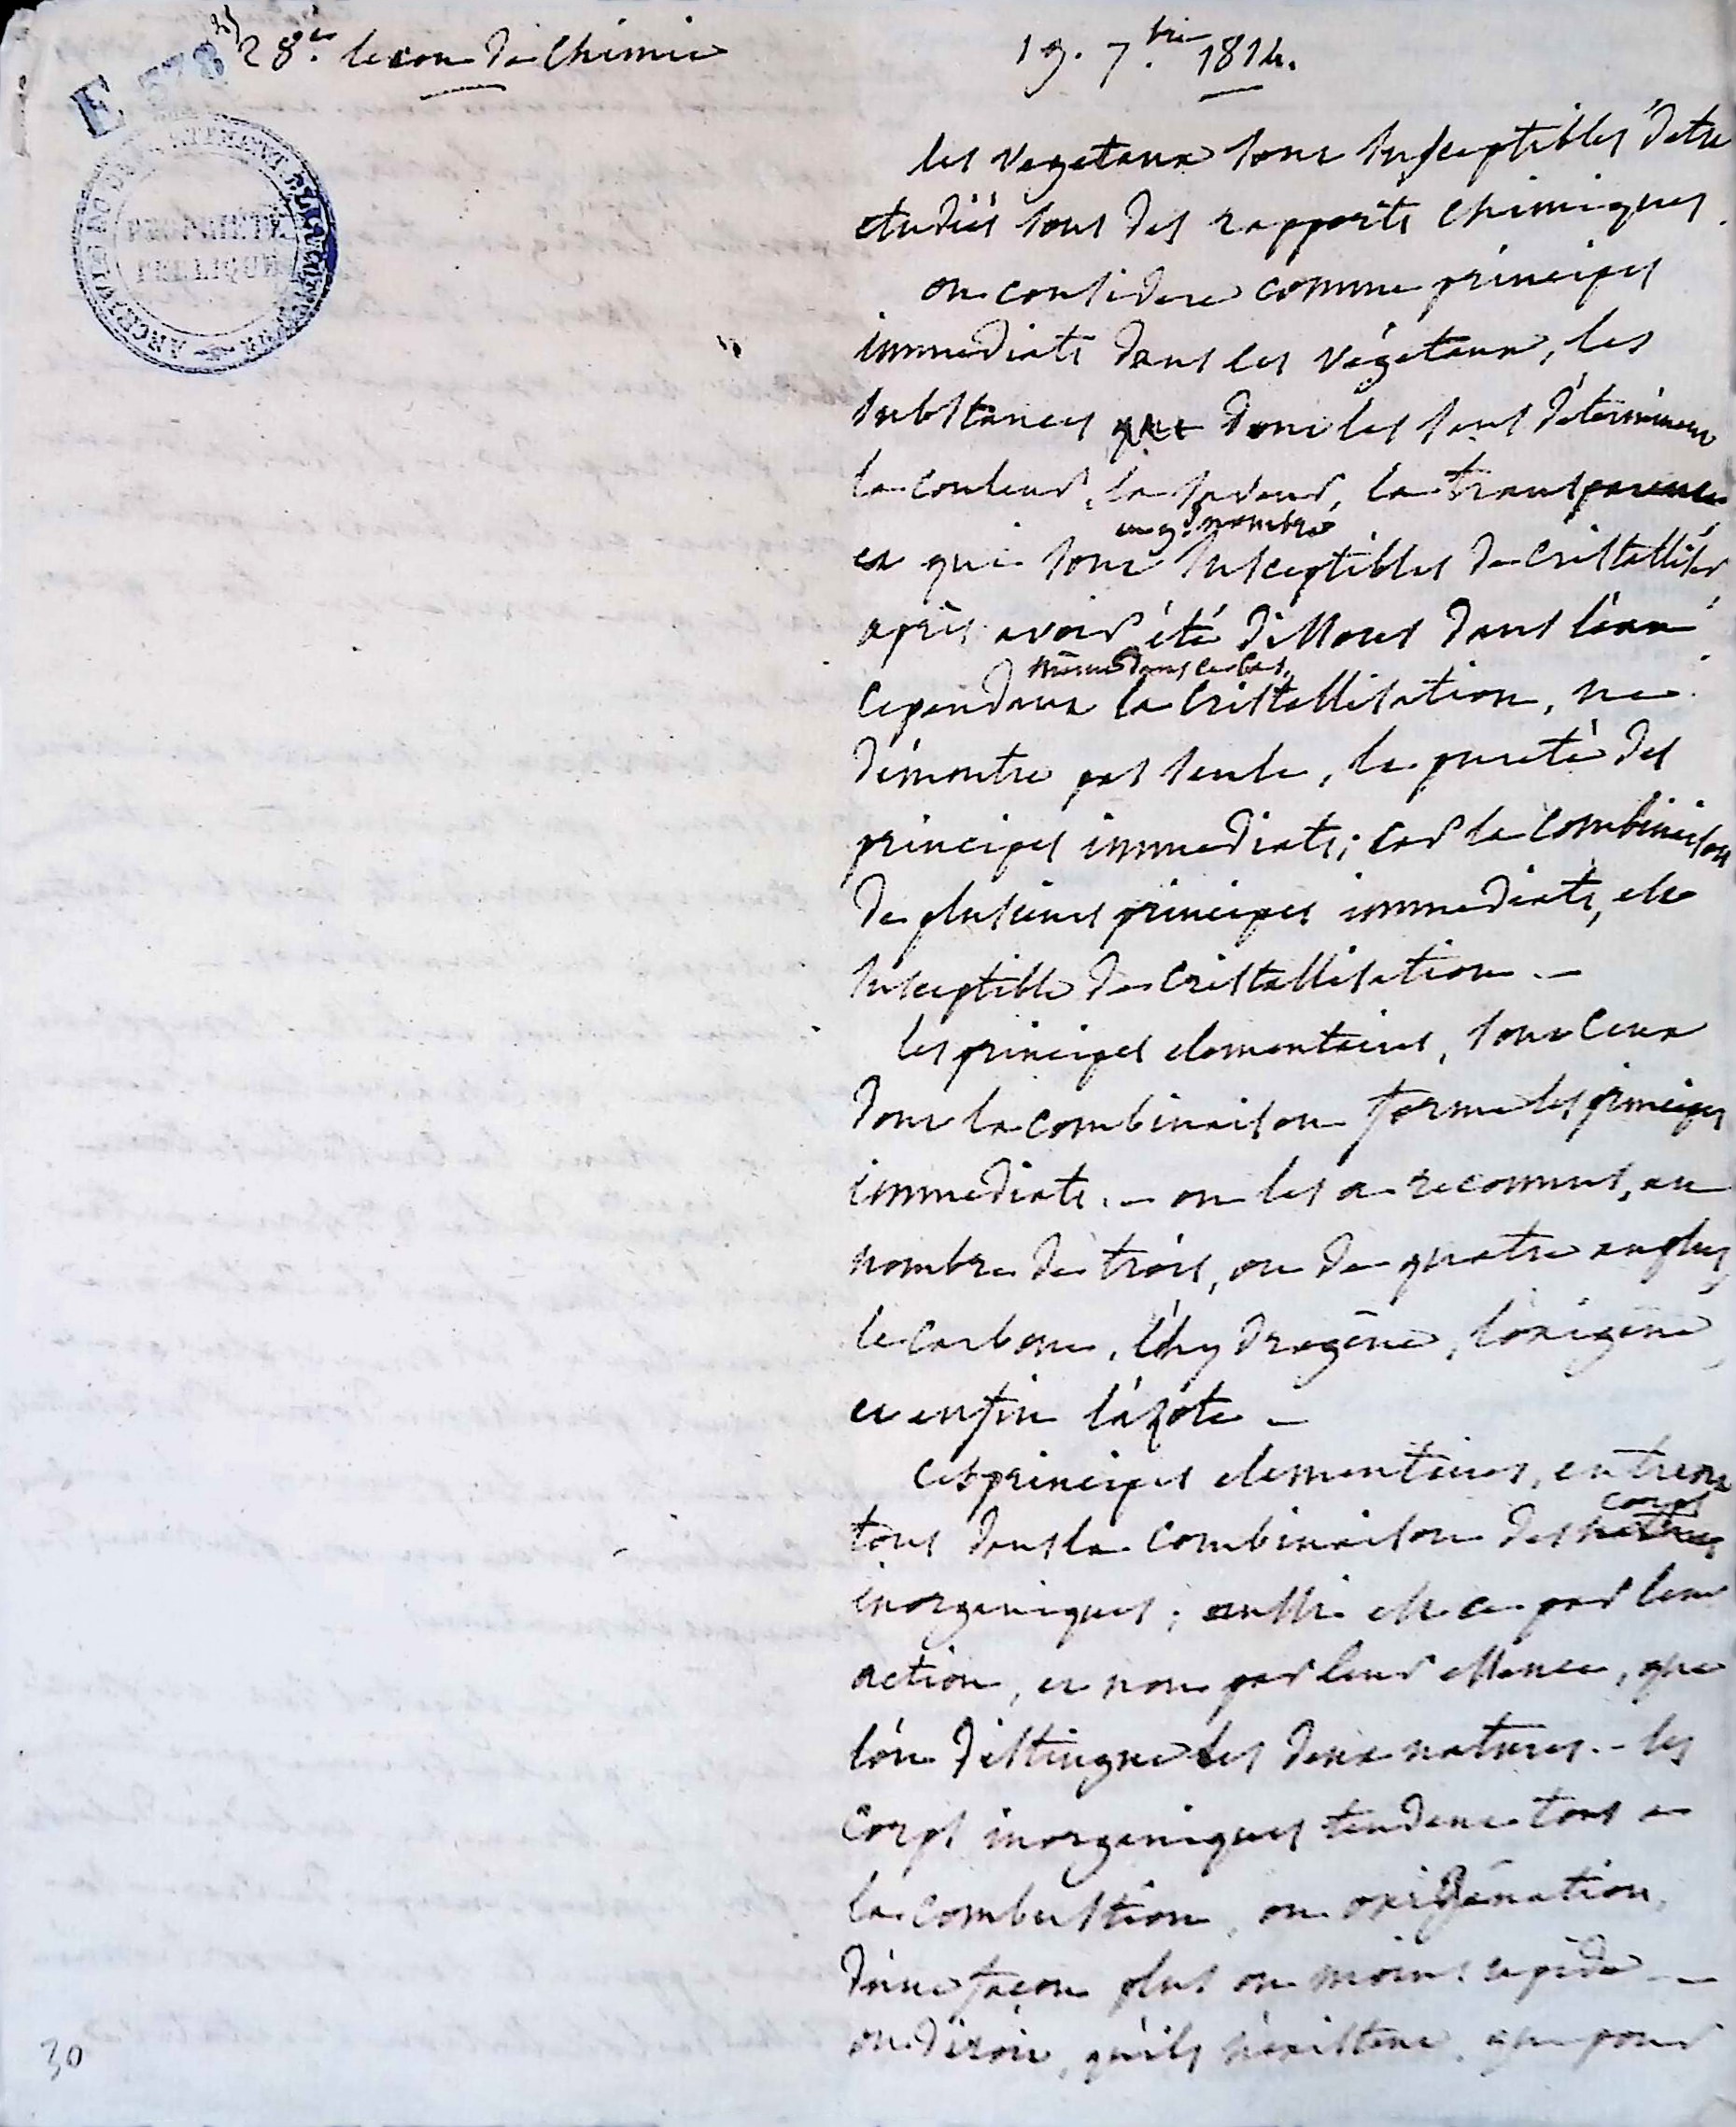 E 378
28.e lecon de Chimie
19. 7.bre 1814.
les vegetaux sont susceptibles d'etre
etudiés sous des rapports chimiques.
on considere comme principes
immediats dans les végetaux, les
substances que dont les sens déterminent
la couleur, la saveur, la transparence
en gd nombre
et qui sont susceptibles de cristalliser
après avoir été dissous dans l'eau
même dans ce cas,
cependant la cristallisation, ne
démontre pas seule, la pureté des
principes immediats; car la combinaison
de plusieurs principes immediats, est
susceptible de cristallisation. —
les principes elementaires, sont ceux
dont la combinaison forme les principes
immediats. — on les a reconnus, au
nombre de trois, ou de quatre au plus,
le carbone, l'hydrogène, l'oxigène,
et enfin l'azote —
ces principes elementaires, entrent
corps
tous dans la combinaison des natures
inorganiques; aussi est ce par leur
action, et non par leur essence, que
l'on distingue les deux natures. — les
corps inorganiques tendent tous a
la combustion, ou oxigénation,
d'une façon plus ou moins rapide —
on diroit, qu'ils n'existent que pour
30